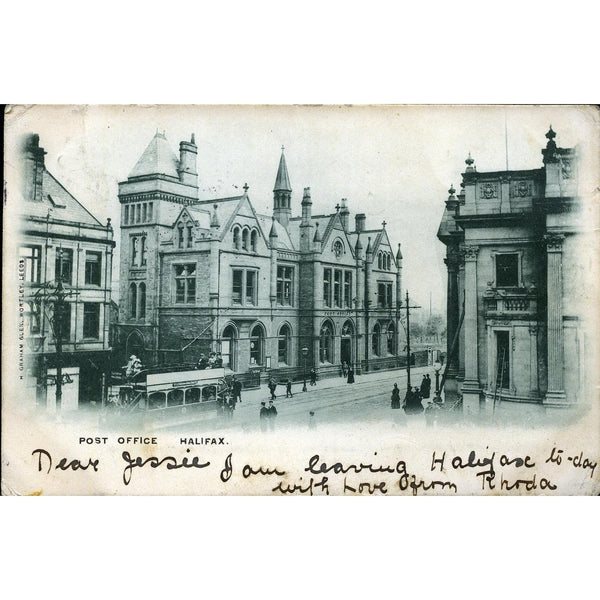 H. GRAHAM GLEN, WORTLEY, LEEDS
POST OFFICE HALIFAX.
Dear Jessie I am leaving Halifax to-day
with Love from Rhoda